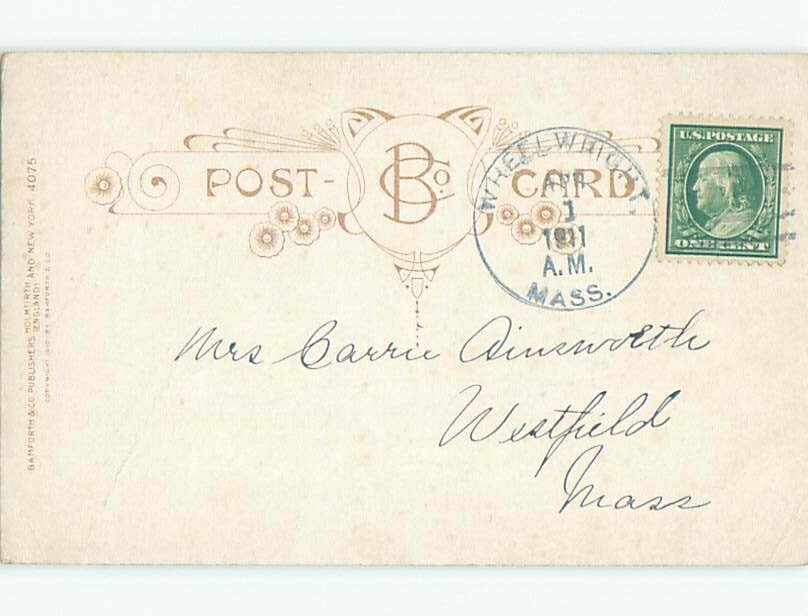 BAMFORTH & CO. PUBLISHERS, HOLMFIRTH AND NEW YORK 4075
(ENGLAND)
COPYRIGHT 1910 BY BAMFORTH & CO
POST-
B Co.
CARD
WHEELWRIGHT.
APR
1
1911
A.M.
MASS.
U.S. POSTAGE
ONE CENT
Mrs Carrie Ainsworth
Westfield
Mass